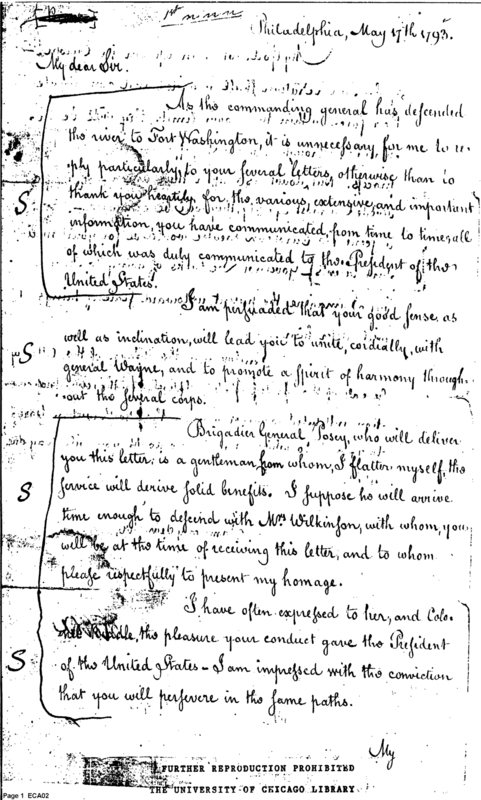 1st
Philadelphia, May 17th 1793.
My dear Sir.
As the commanding general has descended
the river to Fort Washington, it is unnecessary for me to re
ply particularly to your several letters, otherwise than to
thank you heartily for the various, extensive and important
information, you have communicated from time to time all
of which was duly communicated to the President of the
United States.
I am persuaded that your good sense as
well as inclination, will lead you to unite, cordially, with
general Wayne, and to promote a spirit of harmony through-
out the several corps.
Brigadier General Posey, who will deliver
you this letter, is a gentleman from whom, I flatter myself, the
service will derive solid benefits. I suppose he will arrive
time enough to descend with Mrs Wilkinson, with whom, you
will be at the time of receiving this letter, and to whom
please respectfully to present my homage.
I have often expressed to her, and Colo.
Biddle, the pleasure your conduct gave the President
of the United States - I am impressed with the conviction
that you will persevere in the same paths.
My
S
S
S
S
FURTHER REPRODUCTION PROHIBITED
THE UNIVERSITY OF CHICAGO LIBRARY
Page 1 ECA02